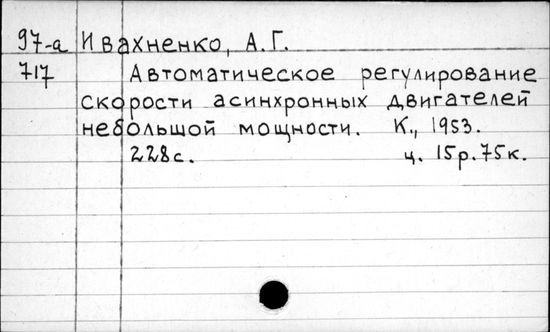 97-а Ивахненко, А.Г.
717 Автоматическое регулирование
скорости асинхронных двигателей
небольшой мощности. К., 1953.
228с. ц. 15р.75к.